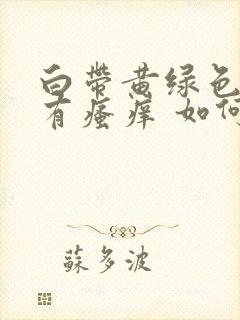 白带黄绿色
有瘙痒 如何
蘇多波